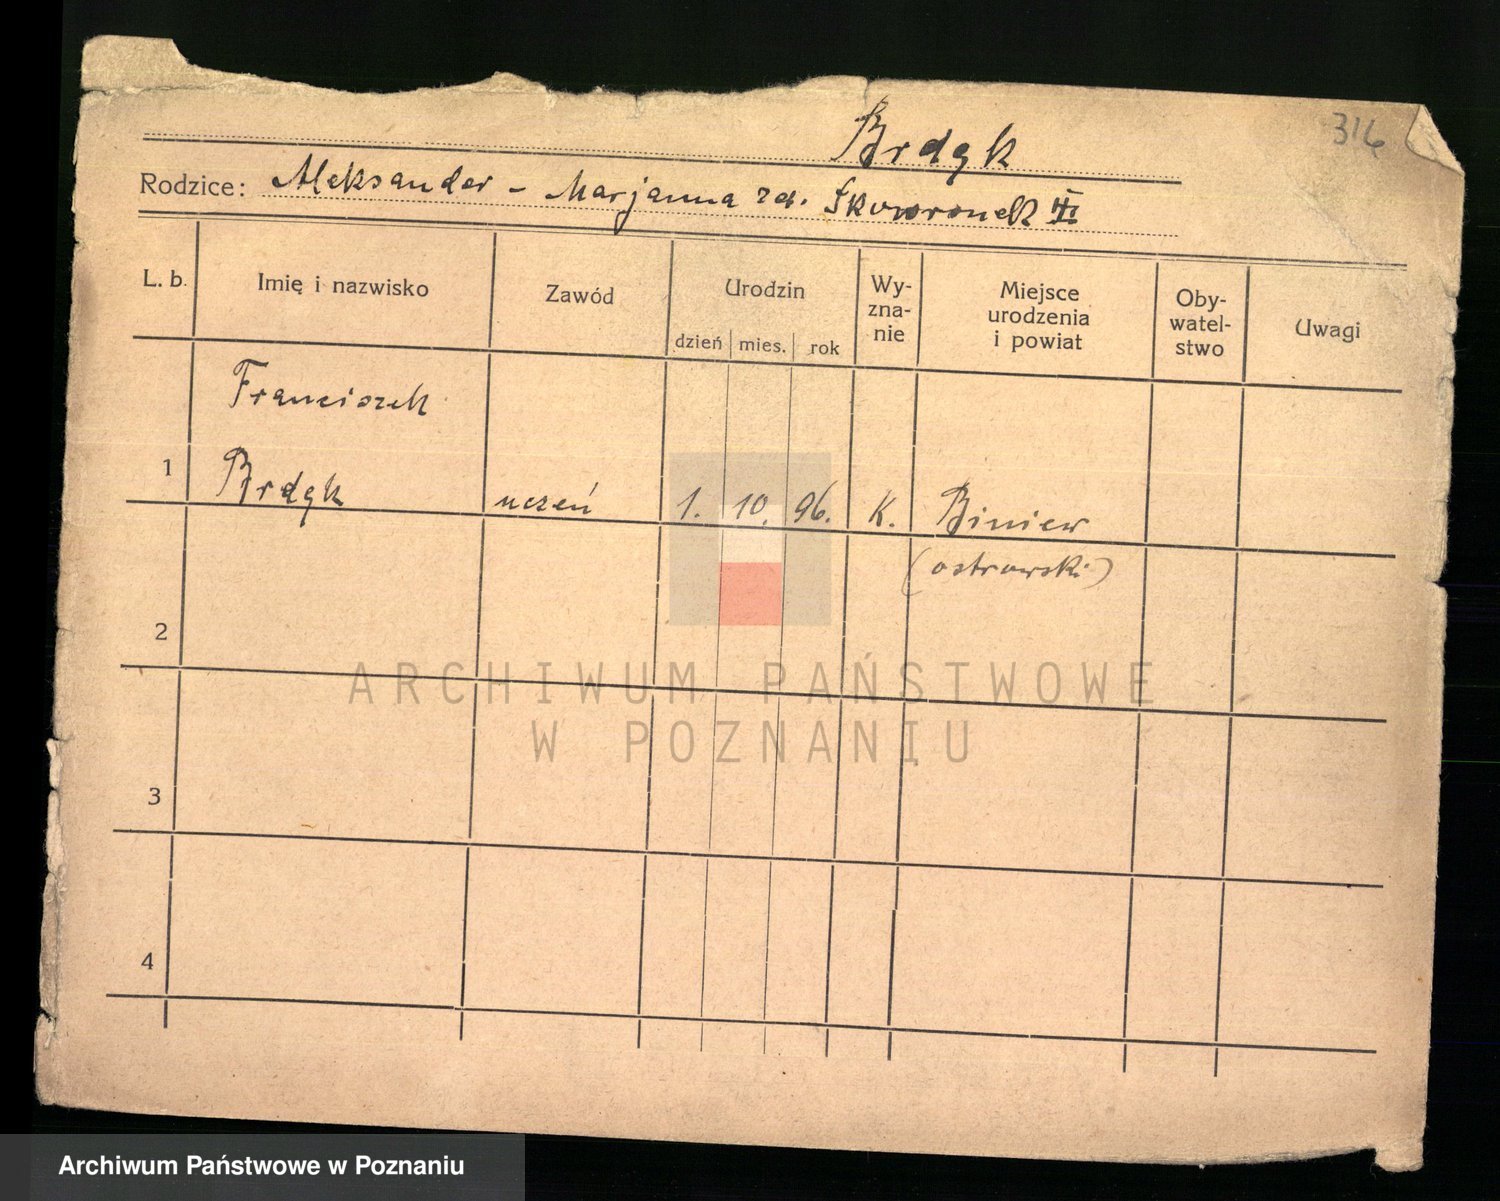 316
Brdąk
Rodzice: Aleksander - Marjanna zd. Skowronek III
L. b. Imię i nazwisko Zawód Urodzin Wy-zna-nie Miejsce urodzenia i powiat Oby-watel-stwo Uwagi
dzień mies. rok
Franciszek
1 Brdąk uczeń 1. 10. 96. K. Biniew
(ostrowski)
2
ARCHIWUM PAŃSTWOWE
W POZNANIU
3
4
Archiwum Państwowe w Poznaniu